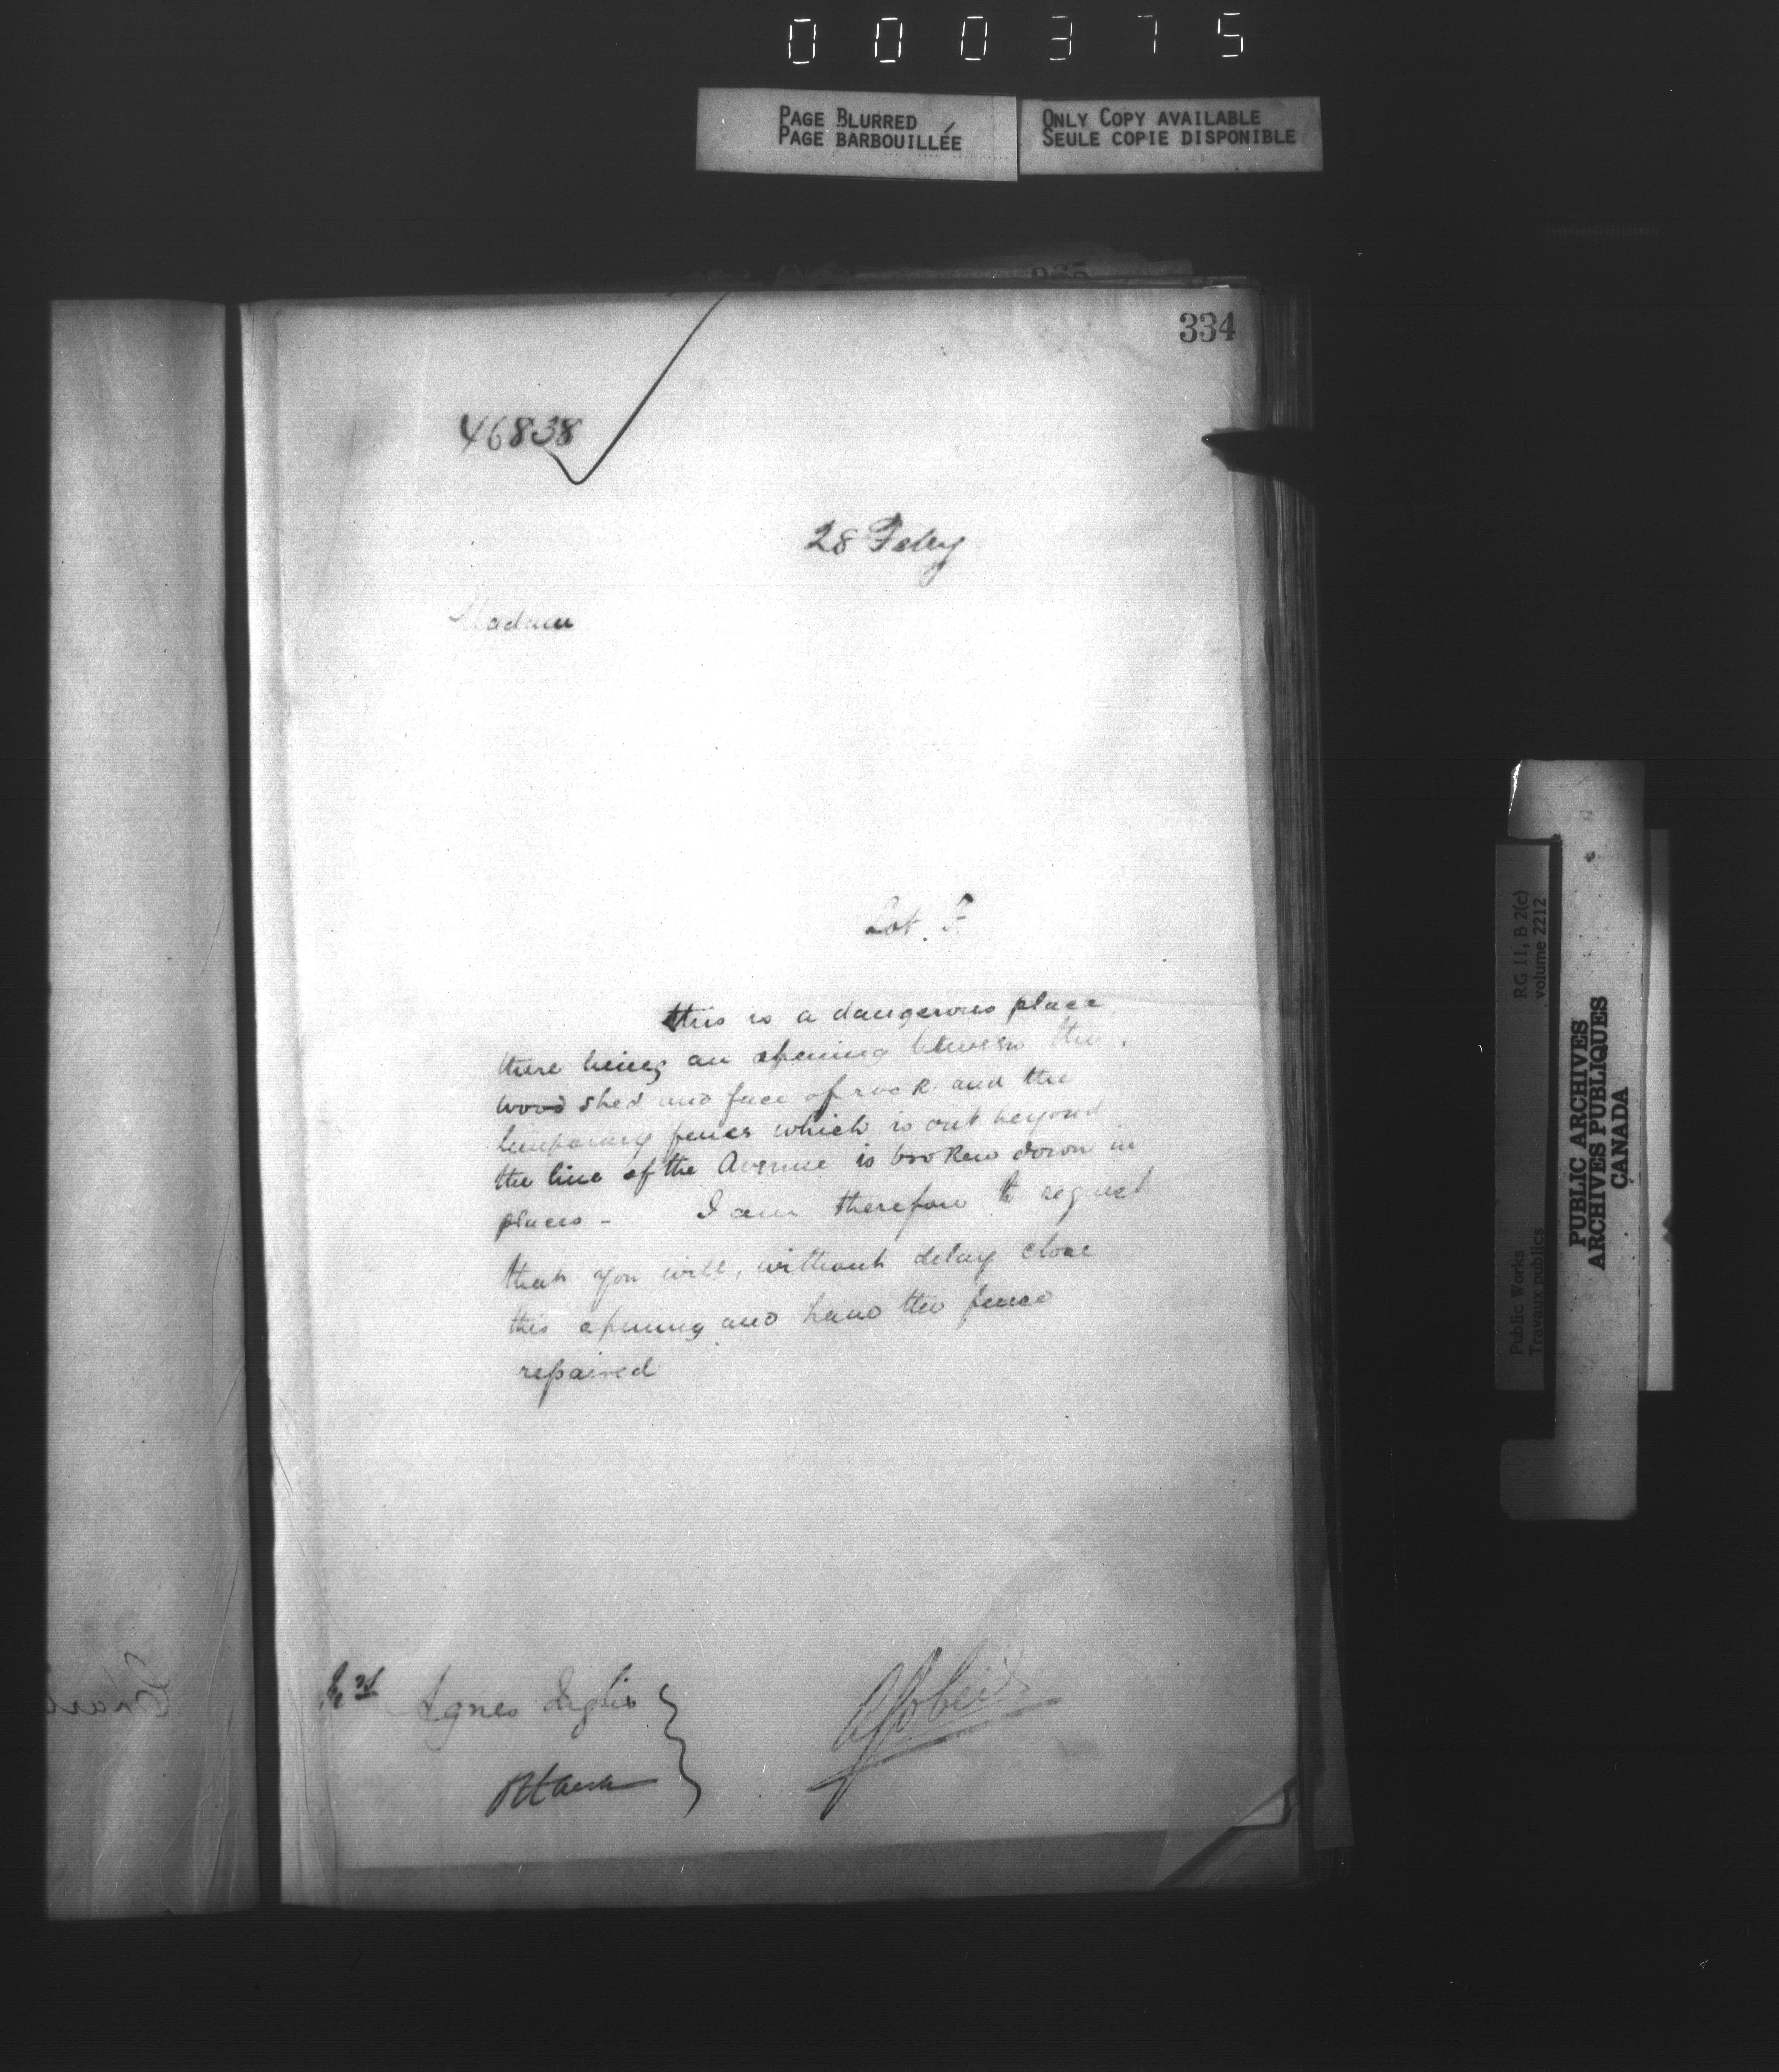 000375
PAGE BLURRED
PAGE BARBOUILLÉE
ONLY COPY AVAILABLE
SEULE COPIE DISPONIBLE
334
46838
28 Feby
Madam
Lot. F
this is a dangerous place
there being an opening between the
wood shed and face of rock and the
temporary fence which is out beyond
the line of the Avenue is broken down in
places - I am therefore to request
that you will, without delay close
this opening and have the fence
repaired
Agnes
RG 11, B 2(c)
volume 2212
Public Works
Travaux publics
PUBLIC ARCHIVES
ARCHIVES PUBLIQUES
CANADA